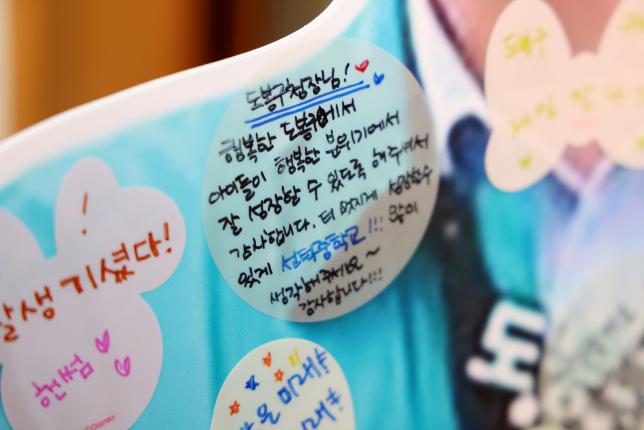 도봉구청장님!
행복한 도봉구에서
아이들이 행복한 분위기에서
잘 성장할 수 있도록 해주셔서
감사합니다. 더 멋지게 성장할수
있게 선덕중학교!!! 많이
생각해주세요~
감사합니다!!!
!
잘생기셨다!
헌써섬
Disney
도봉구
은 미래를